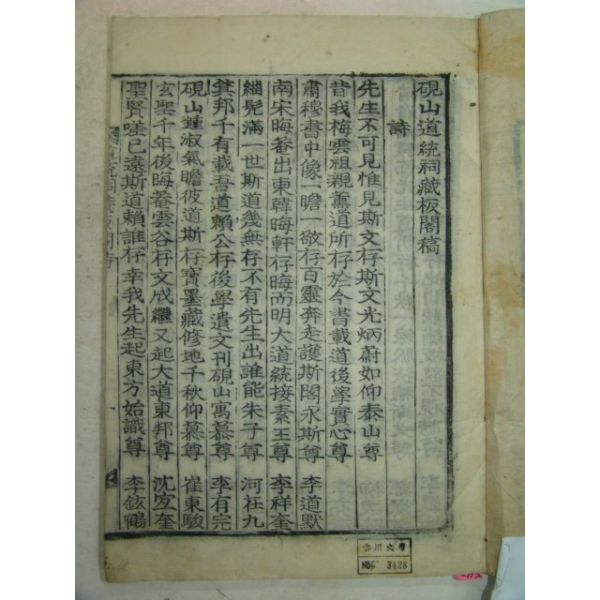 硯山道統祠藏板閣稿
詩
先生不可見惟見斯文存斯文光炳蔚如仰泰山尊
昔我梅雲祖親薰道所存於今書載道後學實心尊 李道默
肅穆書中像一瞻一敬存百靈奔走護斯閣永斯尊
南宋晦菴出東韓晦軒存晦而明大道統接素王尊 李祥奎
緇髡滿一世斯道幾無存不有先生出誰能朱子尊 河在九
箕邦千有載吾道賴公存後學遺文刊硯山寓慕尊 李有完
硯山鍾淑氣瞻彼道斯存寶墨藏修地千秋仰慕尊 崔東駿
玄聖千年後晦菴雲谷存文成繼又起大道東邦尊 沈宜奎
聖賢嗟已遠斯道賴誰存幸我先生起東方始識尊 李鉉鶴
3428